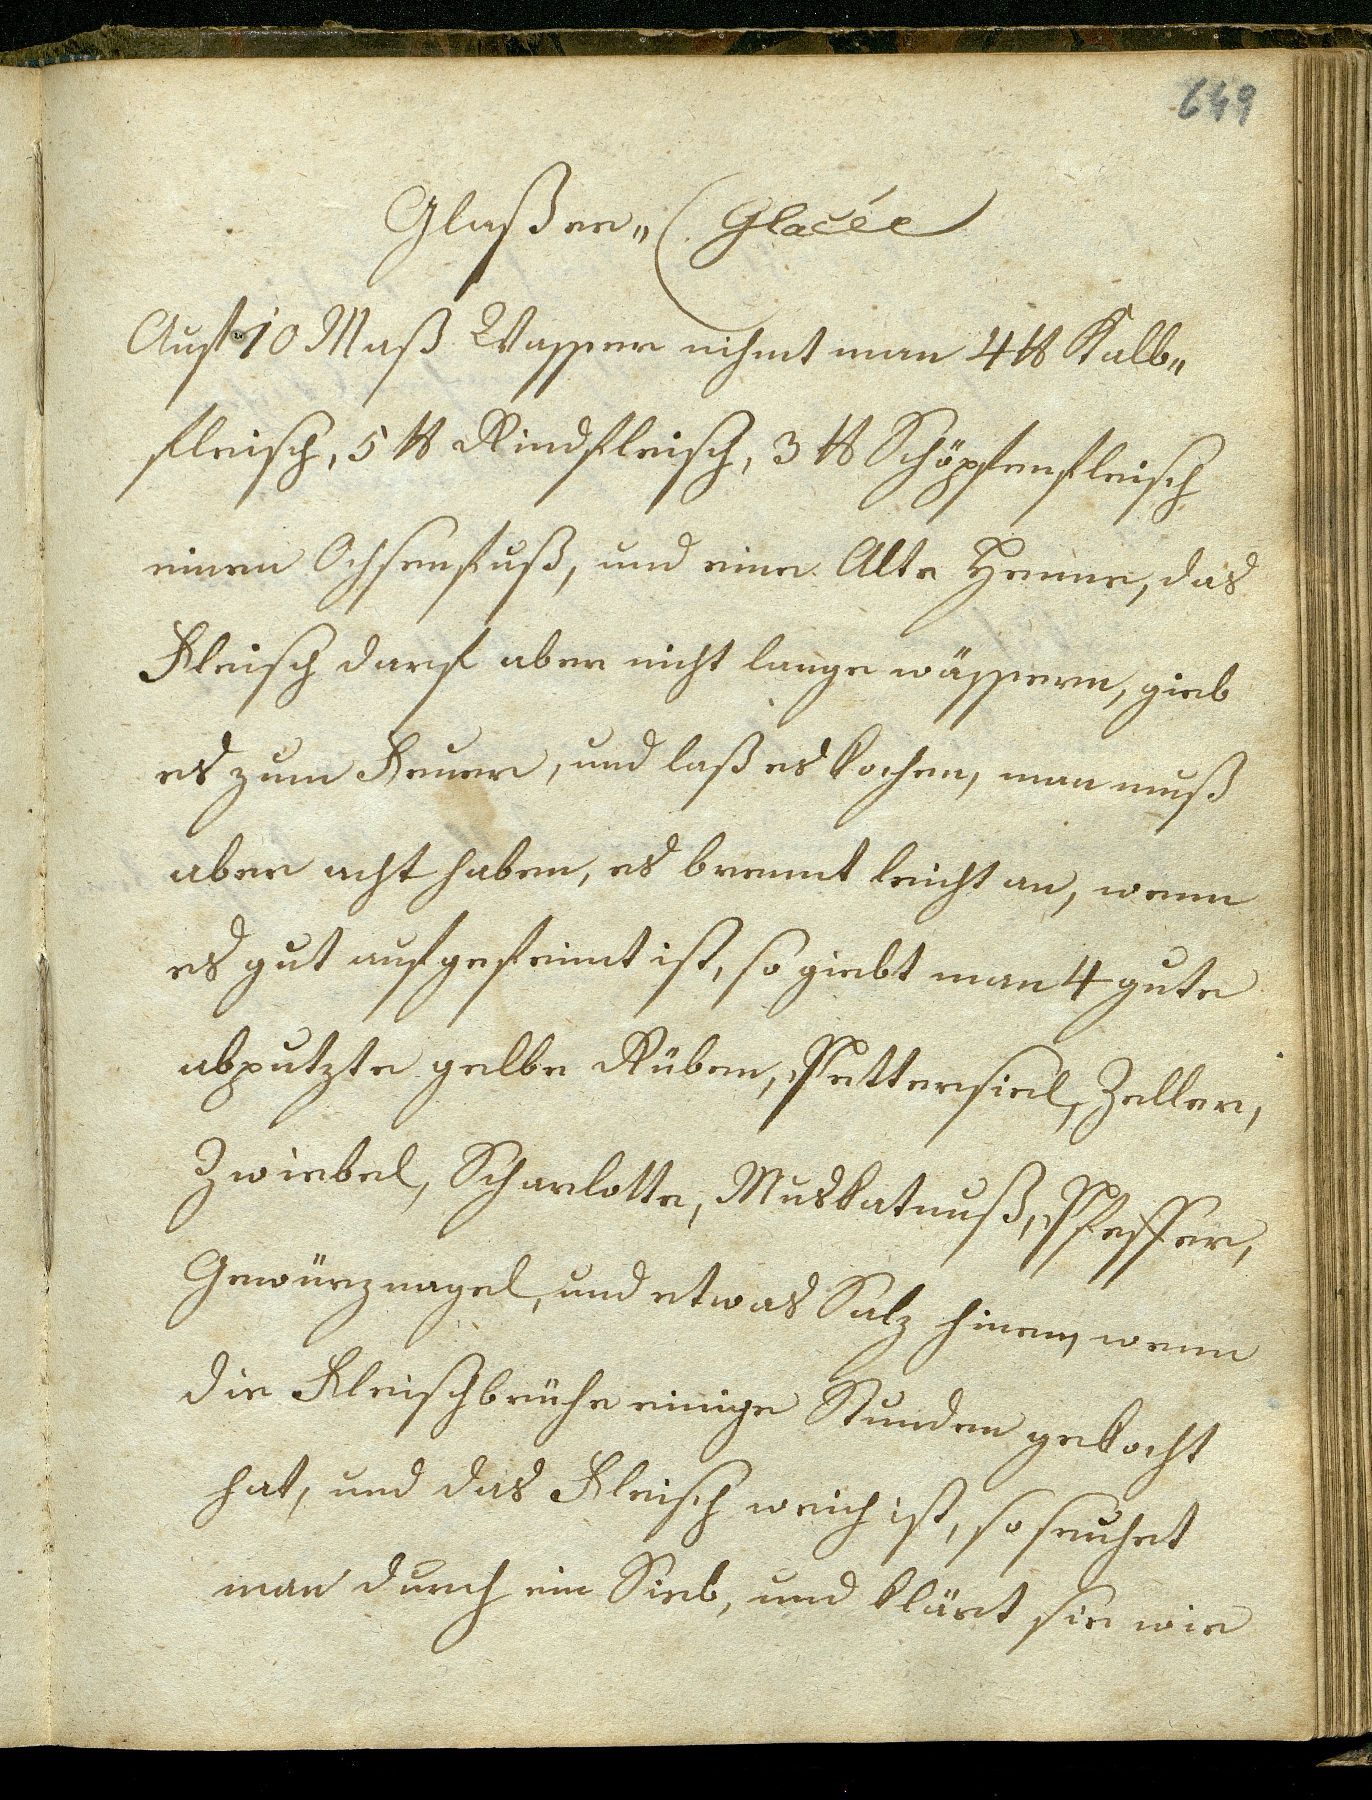 649
Glaßer„ (Glacée
Auf 10 Maß Wasser nihmt man 4 ℔ Kalb„
fleisch, 5 ℔ Rindfleisch, 3 ℔ Schöpfenfleisch
einen Ochsenfuß, und eine Alte Henne, das
Fleisch darf aber nicht lange wässern, gieb
es zum Feuer, und laß es kochen, man muß
aber acht haben, es brennt leicht an, wenn
es gut aufgefeimt ist, so giebt man 4 gute
abputzte gelbe Rüben, Pettersiel, Zeller,
Zwiebel, Scharlotte, Muskatnuß, Pfeffer,
Gewürznagel, und etwas Salz hinein, wenn
die Fleischbrühe einige Stunden gekocht
hat, und das Fleisch weich ist, so seuhet
man durch ein Sieb, und klärt sie wie